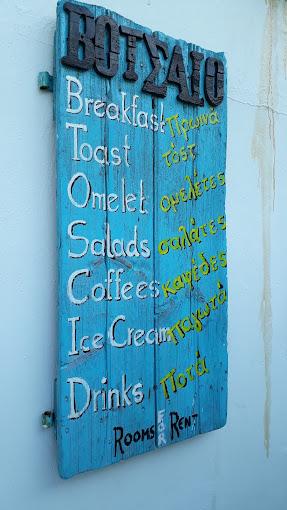 ΒΟΤΣΑΛΟ
Breakfast Πρωινά
Toast τόστ
Omelet ομελέτες
Salads σαλάτες
Coffees καφέδες
Ice Cream Παγωτά
Drinks Ποτά
ROOMS FOR RENT